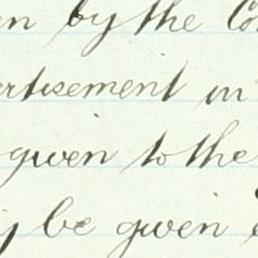 en by the Co
ertisement in
given to the
y be given